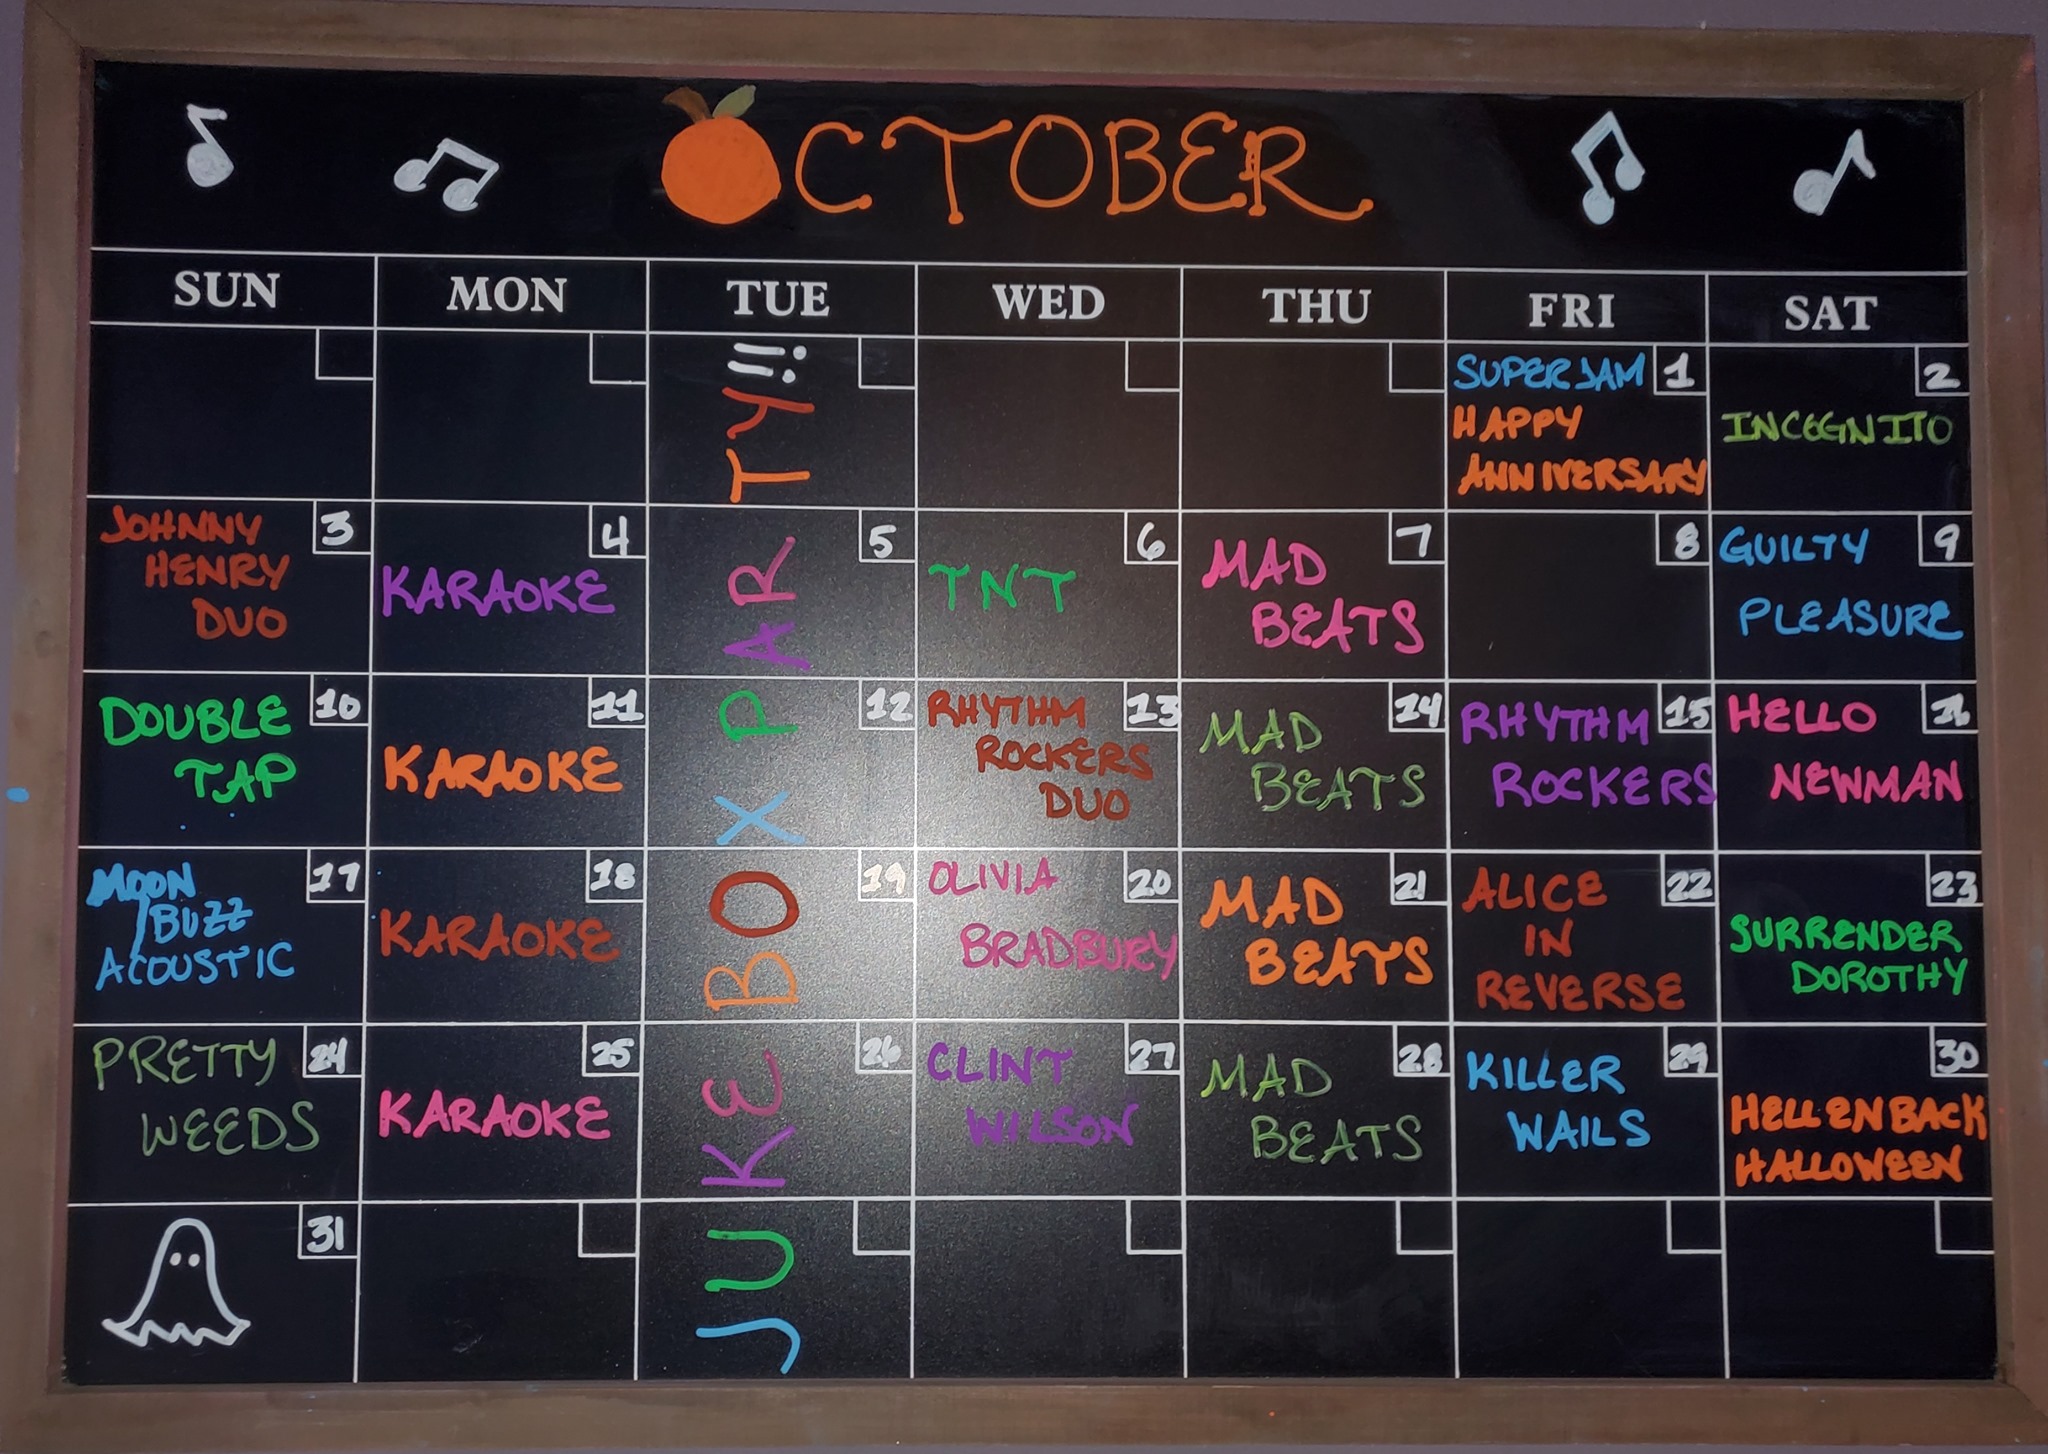 OCTOBER
SUN MON TUE WED THU FRI SAT
JUKE BOX PARTY!!!
1
SUPERJAM
HAPPY
ANNIVERSARY
2
INCOGNITO
3
JOHNNY
HENRY
DUO
4
KARAOKE
5
6
TNT
7
MAD
BEATS
8
9
GUILTY
PLEASURE
10
DOUBLE
TAP
11
KARAOKE
12
13
RHYTHM
ROCKERS
DUO
14
MAD
BEATS
15
RHYTHM
ROCKERS
16
HELLO
NEWMAN
17
MOON
BUZZ
ACOUSTIC
18
KARAOKE
19
20
OLIVIA
BRADBURY
21
MAD
BEATS
22
ALICE
IN
REVERSE
23
SURRENDER
DOROTHY
24
PRETTY
WEEDS
25
KARAOKE
26
27
CLINT
WILSON
28
MAD
BEATS
29
KILLER
WAILS
30
HELLENBACK
HALLOWEEN
31